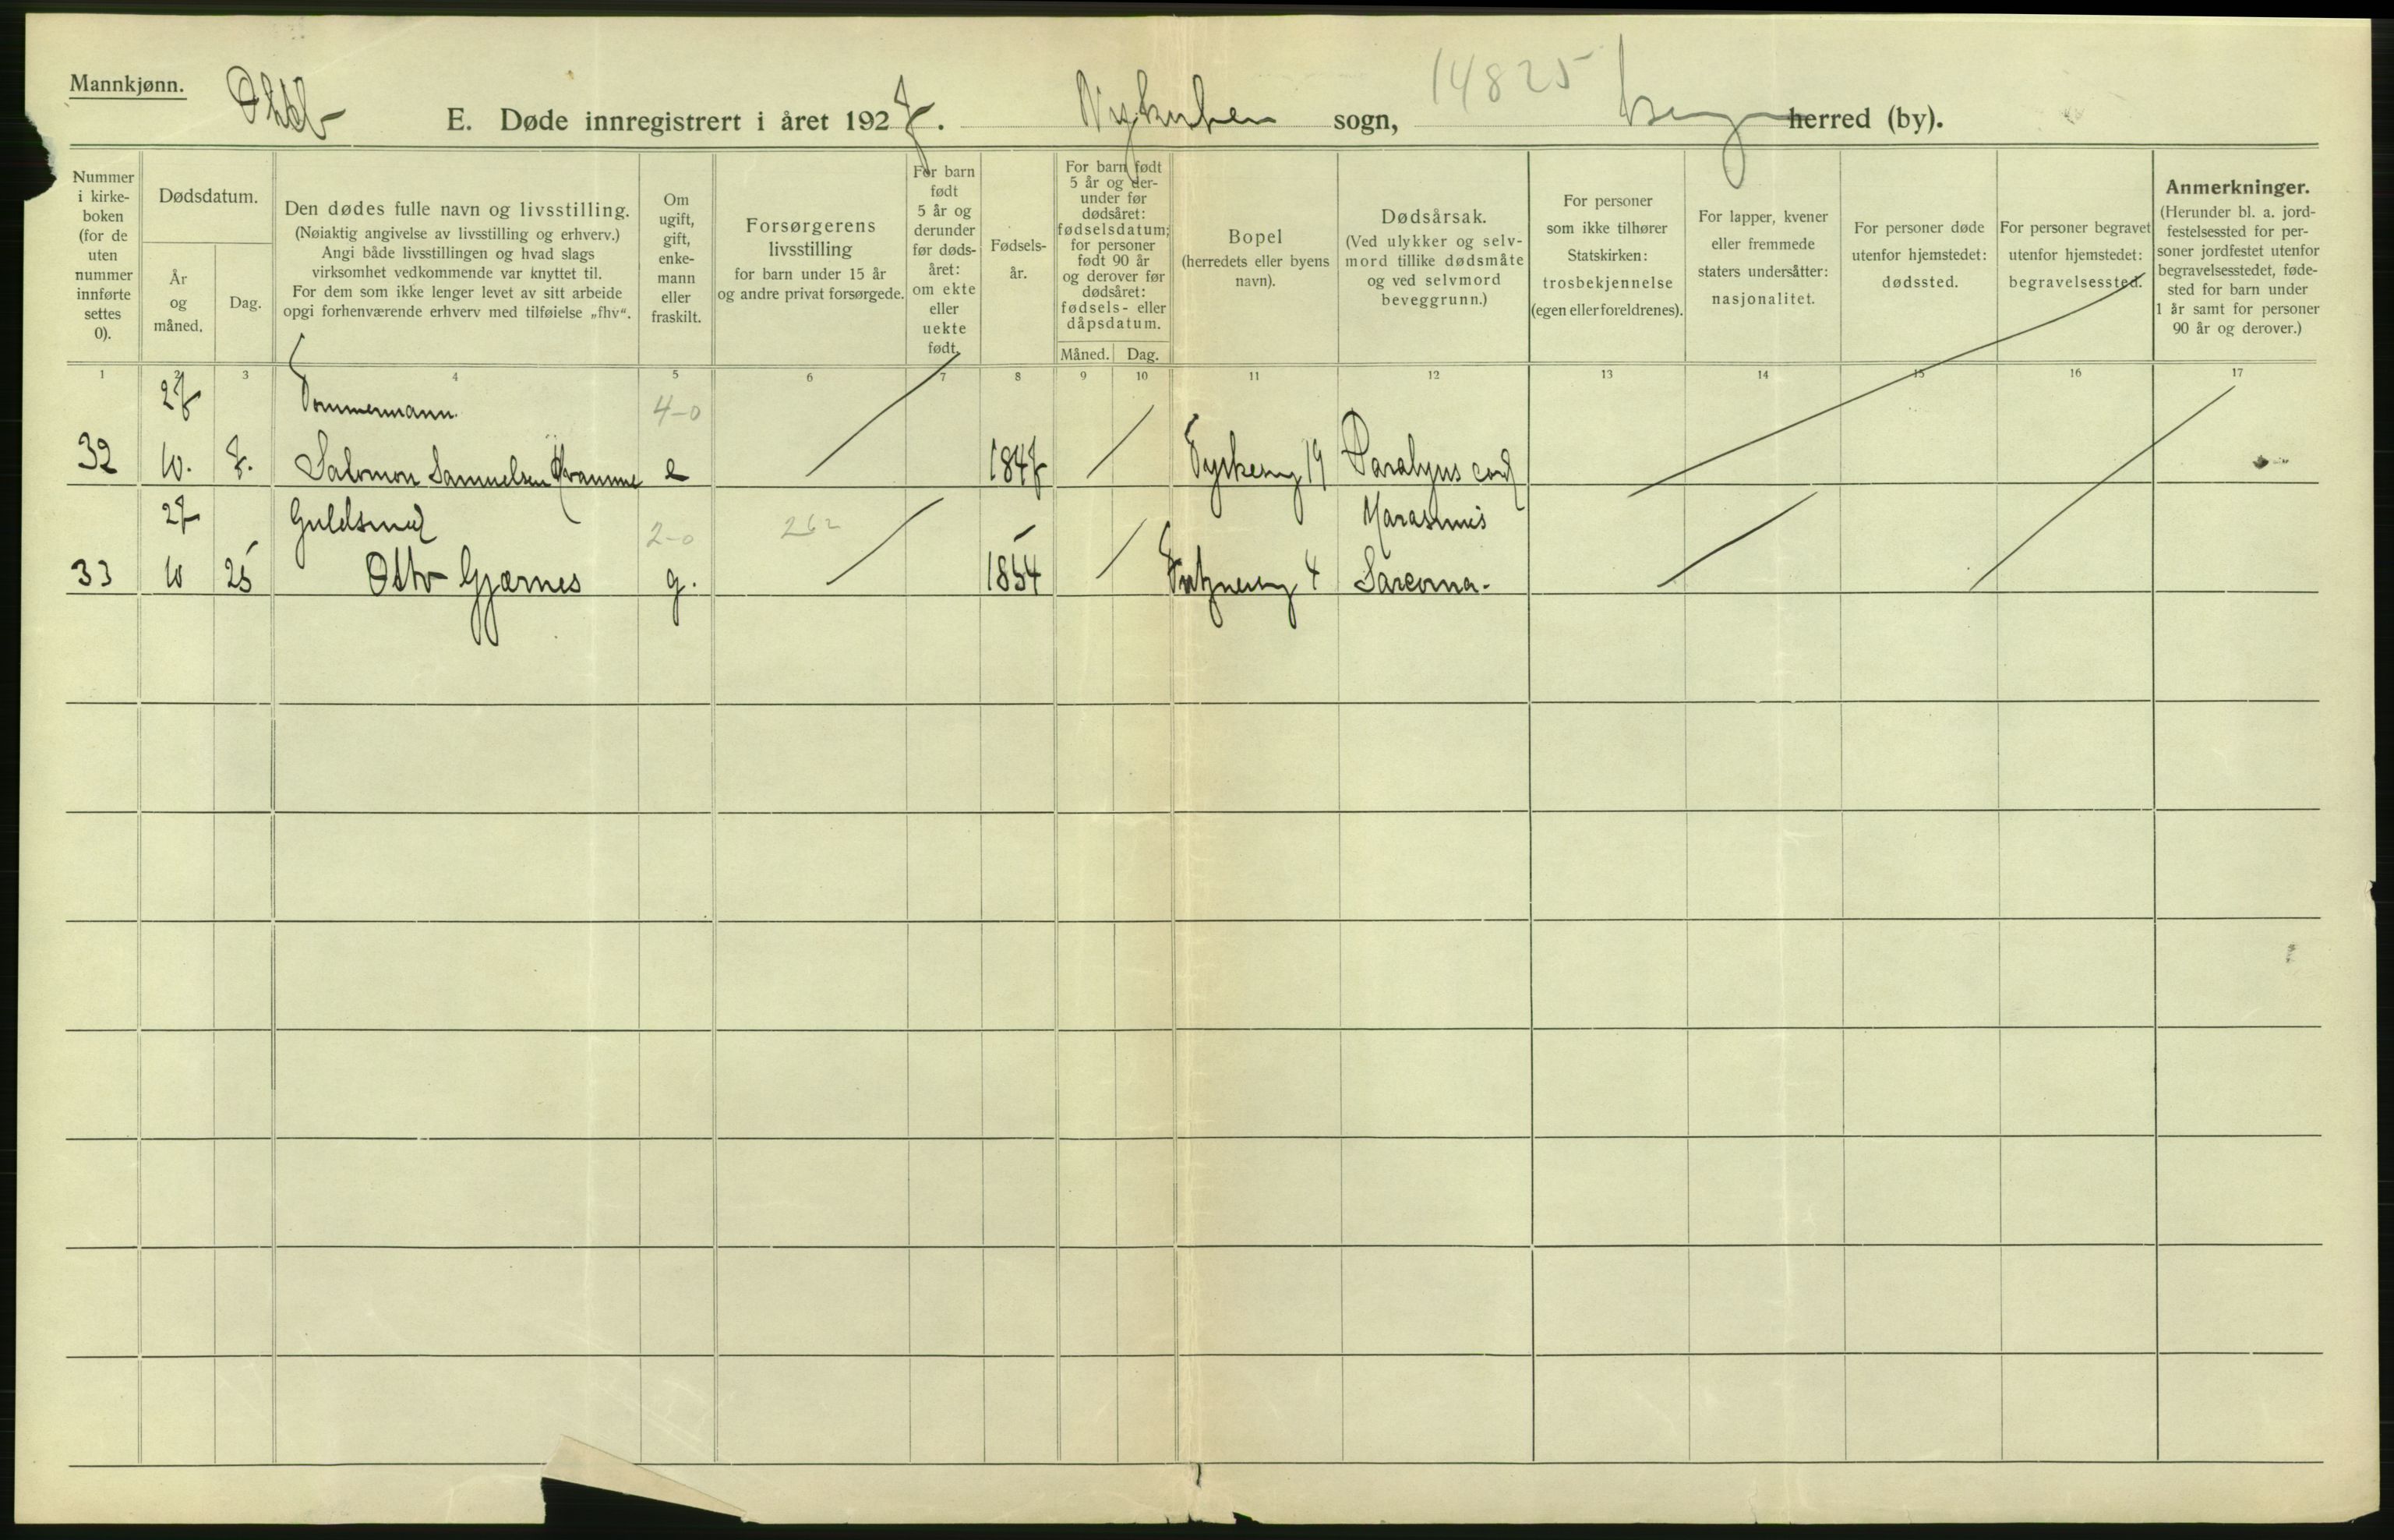 Mannkjønn.
14825
E. Døde innregistrert i året 1927. Nykirken sogn, Bergen herred (by).
Nummer i kirke- boken (for de uten nummer innførte settes 0).
Dødsdatum.
År og måned.
Dag.
Den dødes fulle navn og livsstilling.
(Nøiaktig angivelse av livsstilling og erhverv.)
Angi både livsstillingen og hvad slags
virksomhet vedkommende var knyttet til.
For dem som ikke lenger levet av sitt arbeide
opgi forhenværende erhverv med tilføielse „fhv“.
Om ugift, gift, enke- mann eller fraskilt.
Forsørgerens
livsstilling
for barn under 15 år
og andre privat forsørgede.
For barn født 5 år og derunder før døds- året: om ekte eller uekte født.
Fødsels- år.
For barn født 5 år og der- under før dødsåret: fødselsdatum; for personer født 90 år og derover før dødsåret: fødsels- eller dåpsdatum.
Måned. Dag.
Bopel
(herredets eller byens
navn).
Dødsårsak.
(Ved ulykker og selv-
mord tillike dødsmåte
og ved selvmord
beveggrunn.)
For personer
som ikke tilhører
Statskirken:
trosbekjennelse
(egen eller foreldrenes).
For lapper, kvener
eller fremmede
staters undersåtter:
nasjonalitet.
For personer døde
utenfor hjemstedet:
dødssted.
For personer begravet
utenfor hjemstedet:
begravelsessted.
Anmerkninger.
(Herunder bl. a. jord-
festelsessted for per-
soner jordfestet utenfor
begravelsesstedet, føde-
sted for barn under
1 år samt for personer
90 år og derover.)
1 2 3 4 5 6 7 8 9 10 11 12 13 14 15 16 17
27 Tømmermann 4-0
32 10. 7. Salomon Samuelsen Kvamme e 1847 19 Paralysis cord
27 Guldsmed 2-0 262 Marasmus
33 10 25 Otto Gjærnes g. 1854 4 Sarcoma-